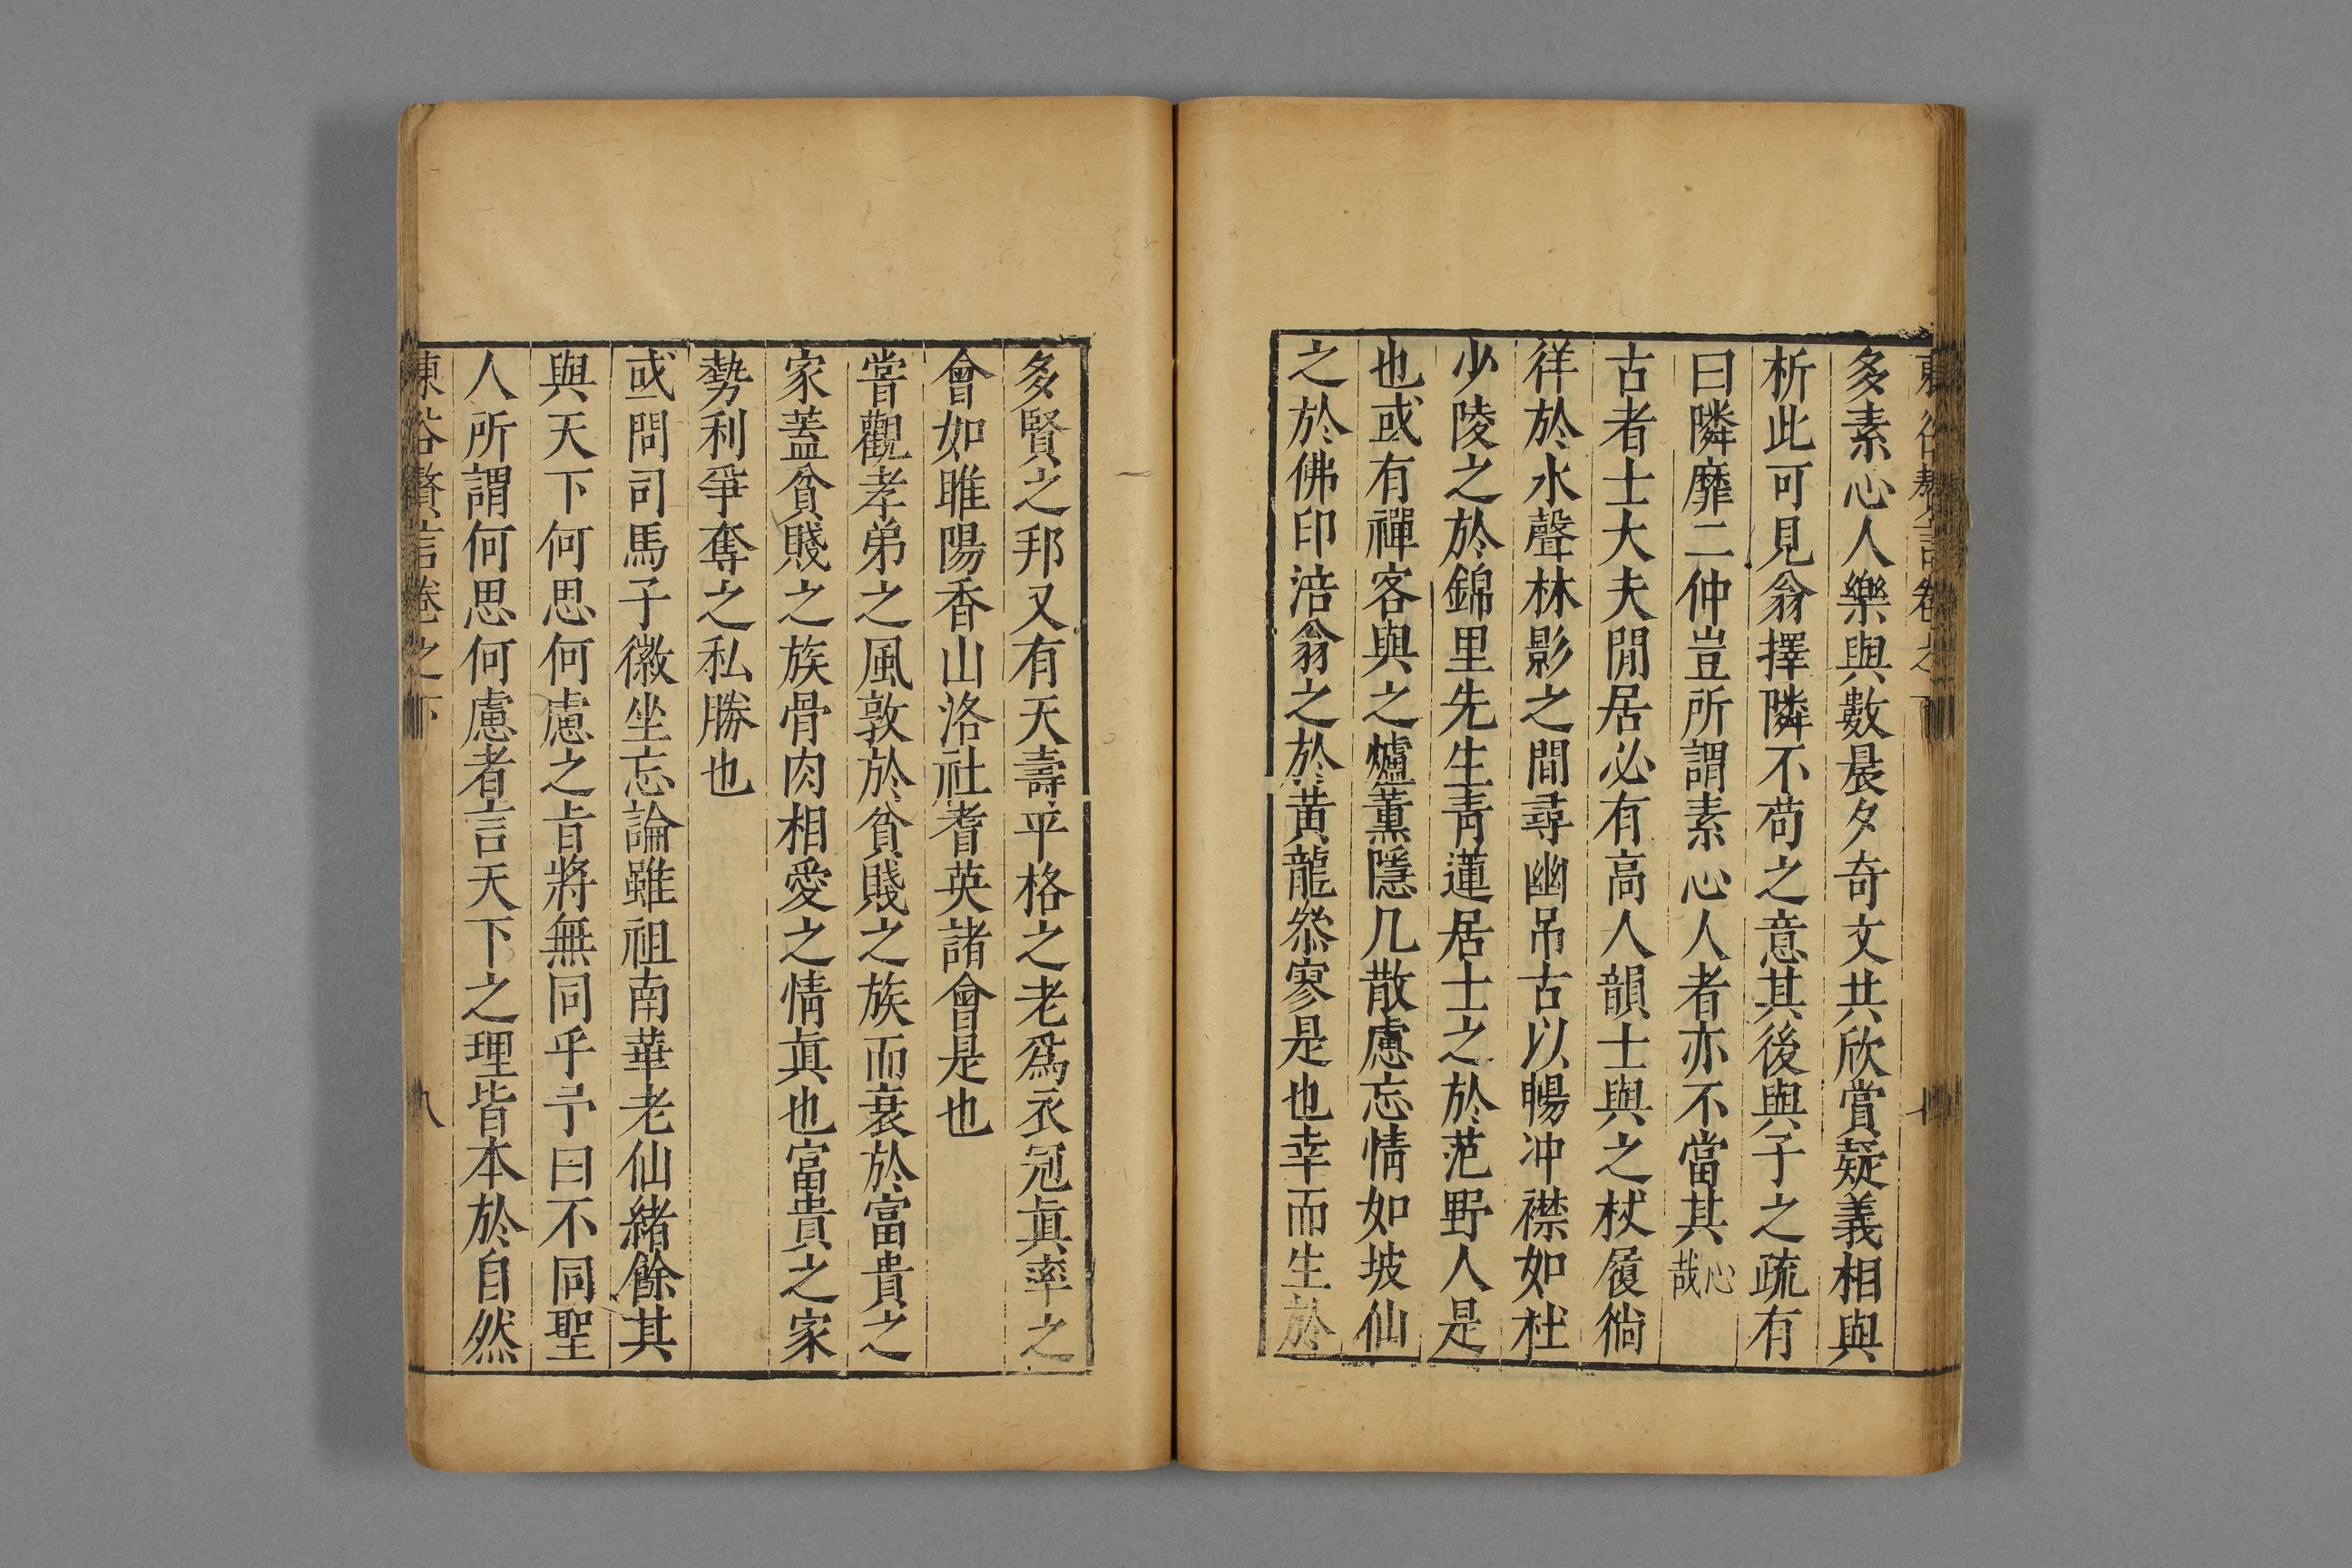 東谷贅言卷之下
多素心人樂與數晨夕奇文共欣賞疑義相與
析此可見翁擇隣不苟之意其後與子之疏有
曰隣靡二仲豈所謂素心人者亦不當其心哉
古者士大夫閒居必有高人韻士與之杖履徜
徉於水聲林影之間尋幽吊古以暢冲襟如杜
少陵之於錦里先生青蓮居士之於范野人是
也或有禪客與之爐薰隱几散慮忘情如坡仙
之於佛印涪翁之於黄龍叅寥是也幸而生於
多賢之邦又有天壽平格之老爲衣冠眞率之
會如睢陽香山洛社耆英諸會是也
嘗觀孝弟之風敦於貧賤之族而衰於富貴之
家蓋貧賤之族骨肉相愛之情眞也富貴之家
勢利爭奪之私勝也
或問司馬子徽坐忘論雖祖南華老仙緒餘其
與天下何思何慮之㫖將無同乎予曰不同聖
人所謂何思何慮者言天下之理皆本於自然
東谷贅言卷之下 八